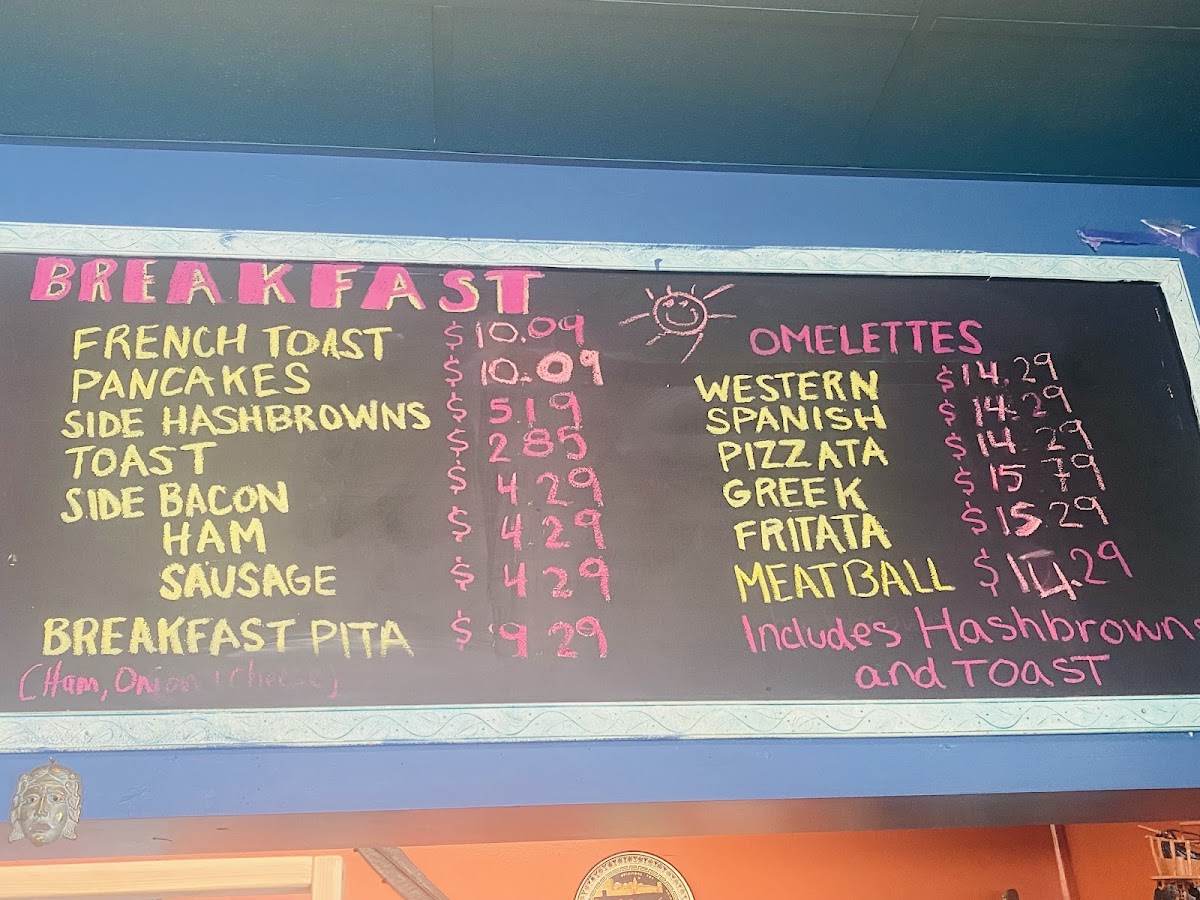 BREAKFAST
FRENCH TOAST $10.09
PANCAKES $10.09
SIDE HASHBROWNS $5.19
TOAST $2.85
SIDE BACON $4.29
HAM $4.29
SAUSAGE $4.29
BREAKFAST PITA $9.29
(Ham, Onion, cheese)
OMELETTES
WESTERN $14.29
SPANISH $14.29
PIZZATA $14 29
GREEK $15 79
FRITATA $15 29
MEATBALL $14.29
Includes Hashbrowns
and TOAST